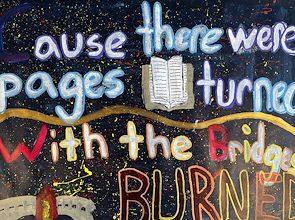 Cause there were
pages turned
With the Bridges
BURNED